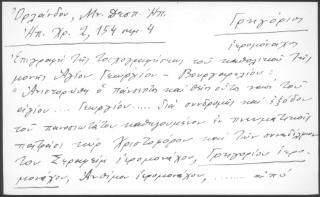 Ὀρλάνδου, Μν. Δεσπ. Ἠπ.
Ἠπ. Χρ. 2, 154 σημ. 4
Γρηγόριος
ἱερομόναχος
Ἐπιγραφὴ τῆς τοιχογραφήσεως τοῦ καθολικοῦ τῆς
μονῆς Ἁγίου Γεωργίου - Βουργαρελίου:
"Ἀνιστορώθη ὁ πάνσεπτος καὶ θεῖος οὗτος ναὸς τοῦ
ἁγίου .... Γεωργίου .... διὰ συνδρομῆς καὶ ἐξόδου
τοῦ πανοσιωτάτου καθηγουμένου ἐν πνευματικοῖς
πατράσι κυρ Χριστοφόρου καὶ τῶν συναδέλφων
του Σεραφεὶμ ἱερομονάχου, Γρηγορίου ἱερο-
μονάχου, Ἀνθίμου ἱερομονάχου, ........ ἀπὸ